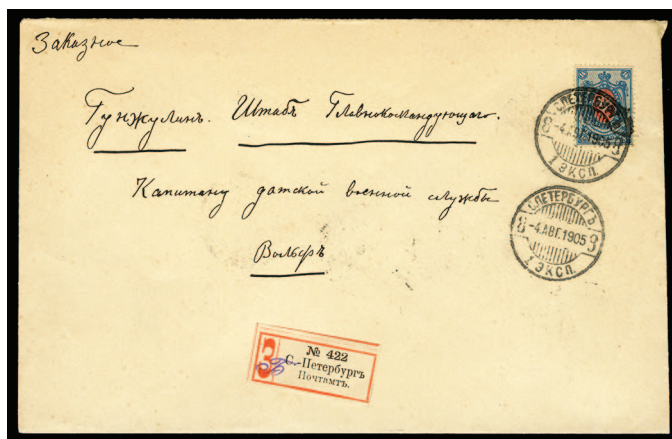 Заказное
Гунжулинъ. Штабъ Главнокомандующаго.
Капитану датской военной службы
Вольфъ
С.ПЕТЕРБУРГЪ
-4.АВГ.1905
1 ЭКСП.
С.ПЕТЕРБУРГЪ
-4.АВГ.1905
1 ЭКСП.
З
№ 422
С.-Петербургъ
Почтамтъ.